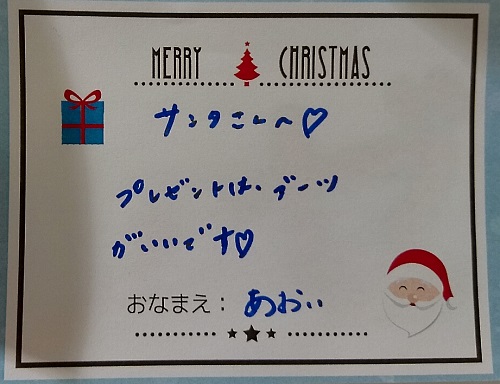 MERRY CHRISTMAS
サンタさんへ♡
プレゼントは、ブーツ
がいいです♡
おなまえ： あおい